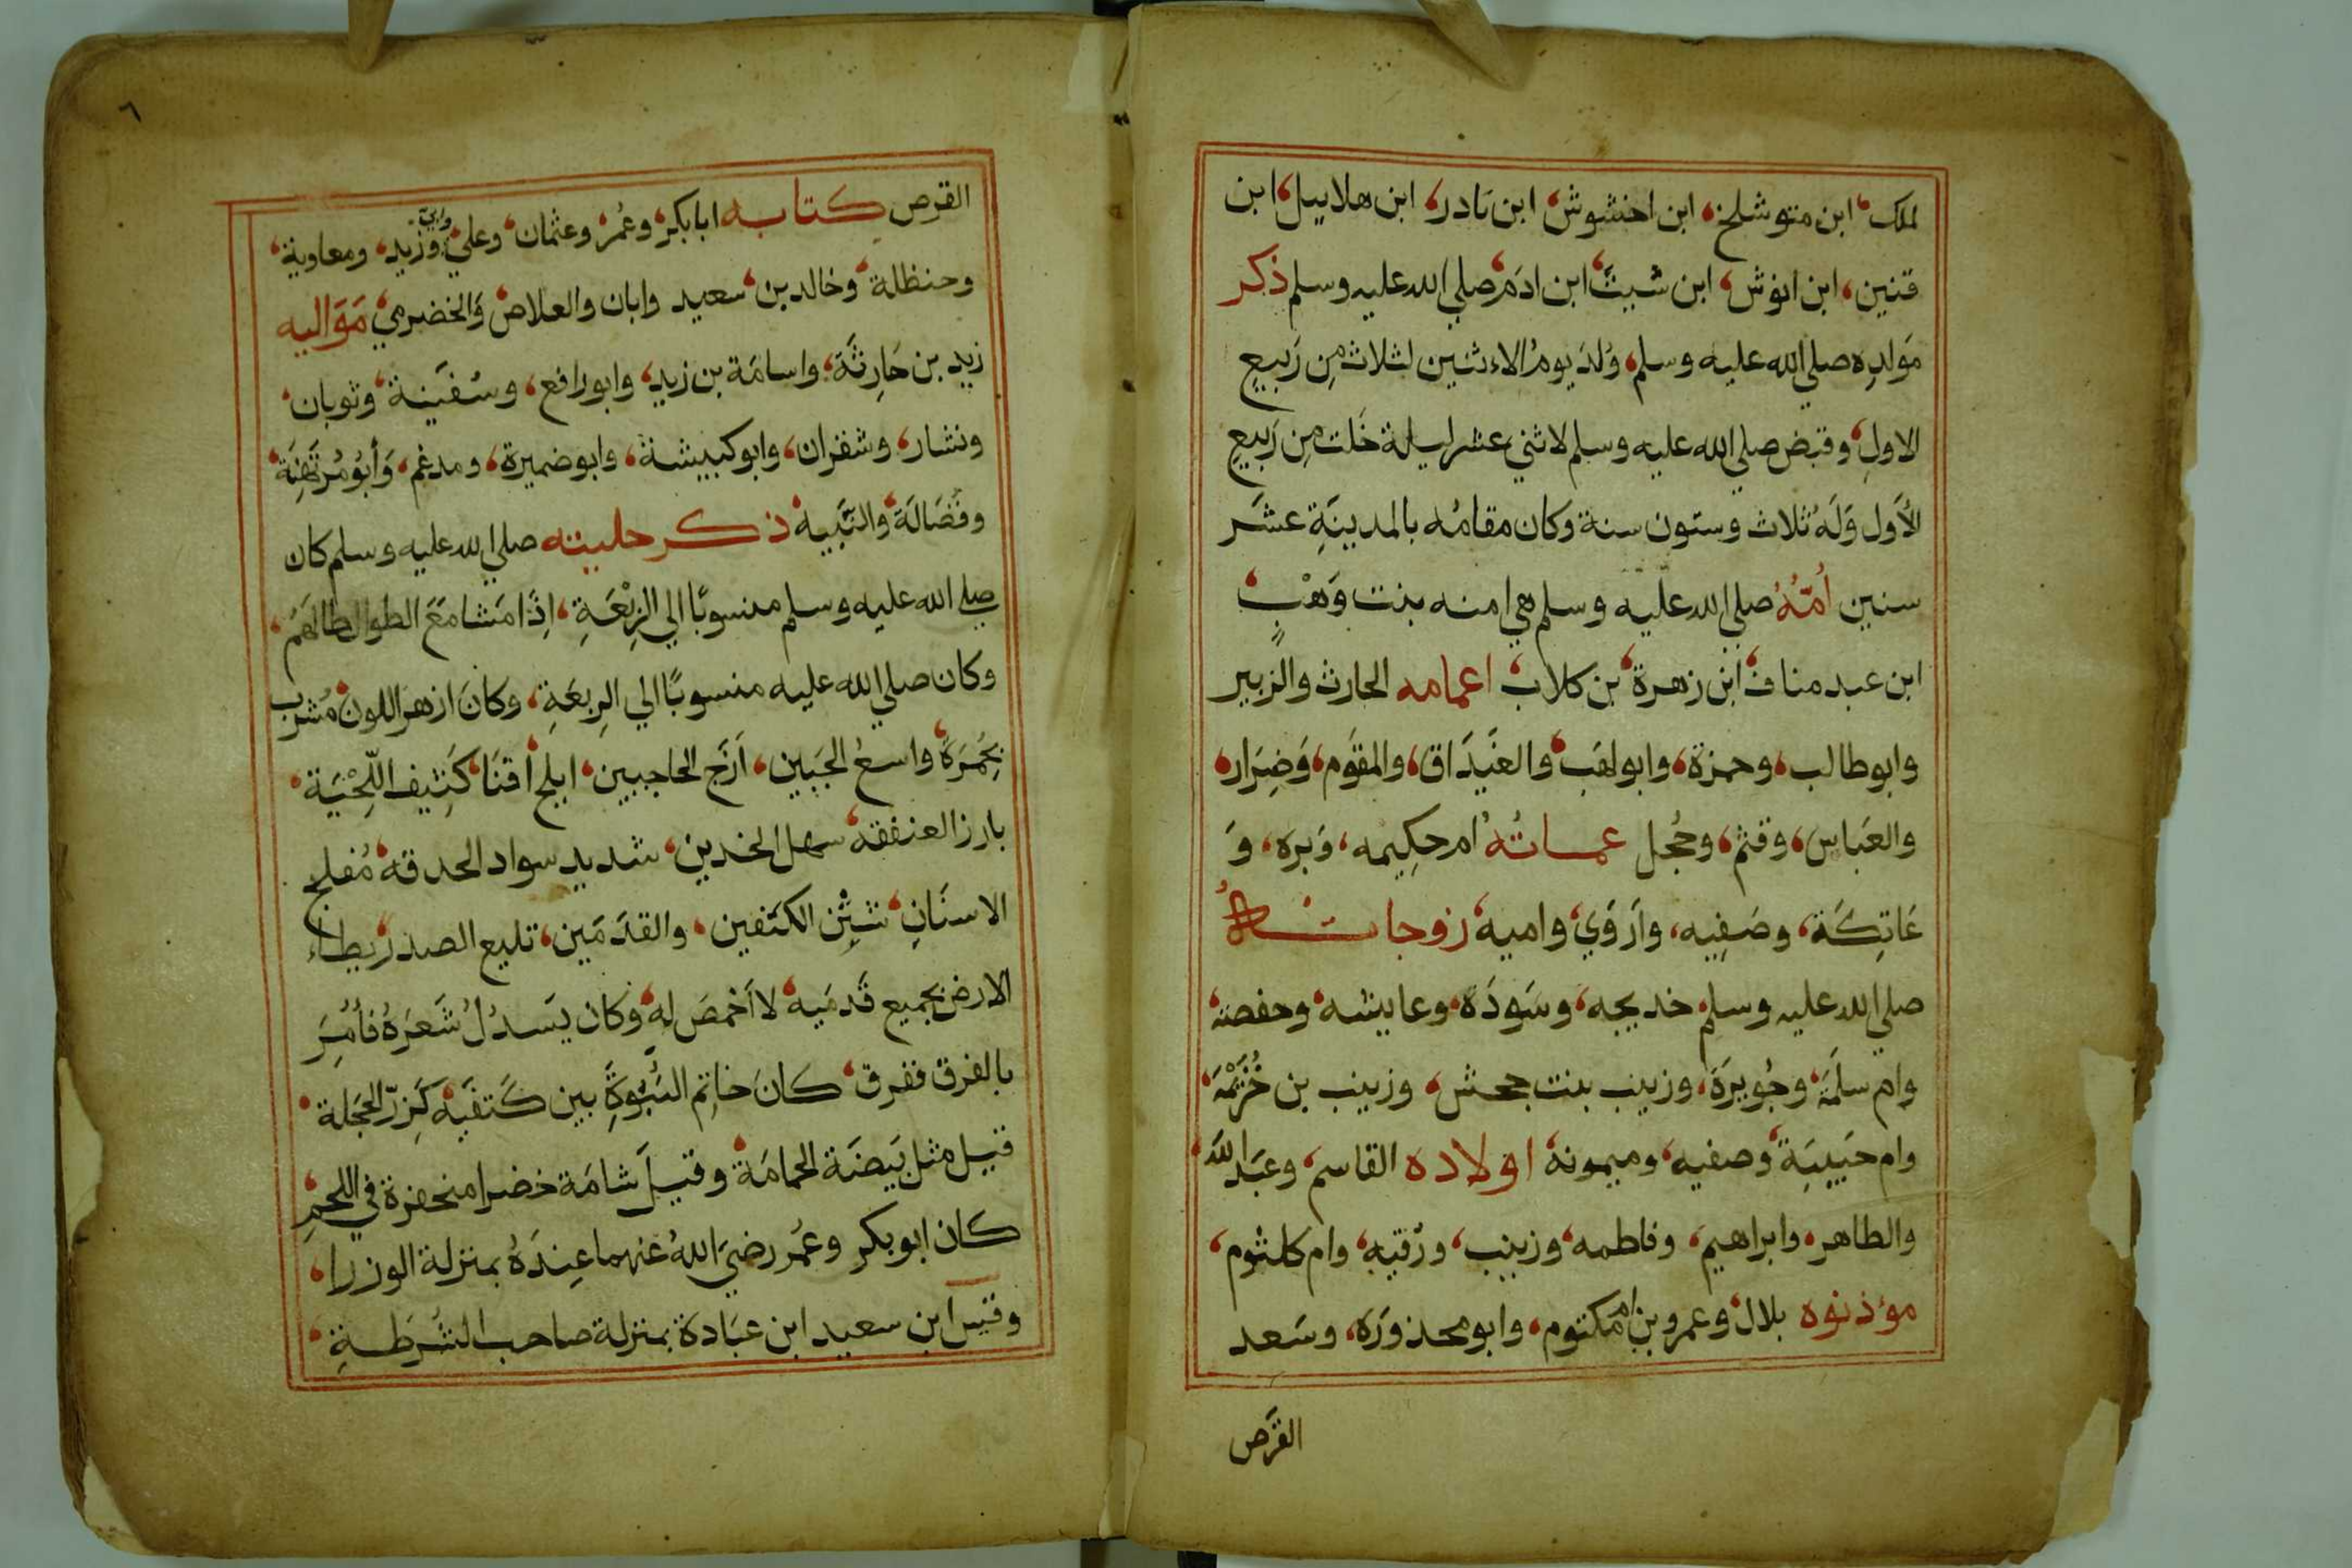 لمك ابن متوشلخ، ابن اخنشوش، ابن يادر، ابن هلاييل، ابن
قنين، ابن انوش، ابن شيث، ابن ادم صلي الله عليه وسلم ذكر
مولده صلي الله عليه وسلم، ولد يوم الاءثنين لثلاث من ربيع
الاول، وقبض صلي الله عليه وسلم لاثني عشر ليلة خلت من ربيع
الأول وله ثلاث وستون سنة وكان مقامه بالمدينة عشر
سنين أمه صلي الله عليه وسلم هي امنه بنت وهب،
ابن عبد مناف، ابن زهرة، بن كلاب، اعمامه الحارث والزبير
وابوطالب، وحمزة، وابولهب، والغيداق، والمقوم، وضرار،
والعباس، وقثم، وحجل عماته ام حكيمه، وبره، و
عاتكة، وصفيه، واروي، واميه، زوجاته
صلي الله عليه وسلم، خديجه، وسودة، وعاييشه، وحفصة،
وام سلمة، وجويرة، وزينب بنت جحش، وزينب بن خزيمة،
وام حبيبة، وصفيه، وميمونة، اولاده القاسم، وعبدالله،
والطاهر، وابراهيم، وفاطمه، وزينب، ورقيه، وام كلثوم،
مؤذنوه بلال، وعمرو بن ام مكتوم، وابو محذورة، وسعد
القرص
٦
القرص كتابه ابابكر، وعمر، وعثمان، وعلي، وابي وزيد، ومعاوية،
وحنظلة، وخالد بن سعيد وابان والعلاص والخضرمي، مواليه
زيد بن حارثة، واسامة بن زيد، وابورافع، وسفينة، وثوبان،
ونشار، وشقران، وابوكبيشة، وابوضميرة، ومدغم، وأبو
وفضالة، والنبيه، ذكر حليته صلي الله عليه وسلم كان
صلي الله عليه وسلم منسوبًا الي الربعة، اذا مشا مع الطوال طالهم،
وكان صلي الله عليه منسوبًا الي الربعة، وكان ازهر اللون، مشرب
بحمرة، واسع الجبين، ازج الحاجبين، ابلج أقنا، كثيف اللحية،
بارز العنفقه، سهل الخدين، شديد سواد الحدقه، مفلج
الاسنان، شثن الكتفين، والقدمين، تليع الصدر، يطاء
الارض بجميع قدميه، لا أخمص له، وكان يسدل شعره فأمر
بالفرق ففرق، كان خاتم النبوة بين كتفيه، كزر الحجلة،
قيل مثل بيضة الحمامة، وقيل شامة خضرا منحفرة في اللحم،
كان ابو بكر وعمر رضي الله عنهما عنده بمنزلة الوزرا،
وقيس ابن سعيد ابن عبادة بمنزلة صاحب الشرطة،